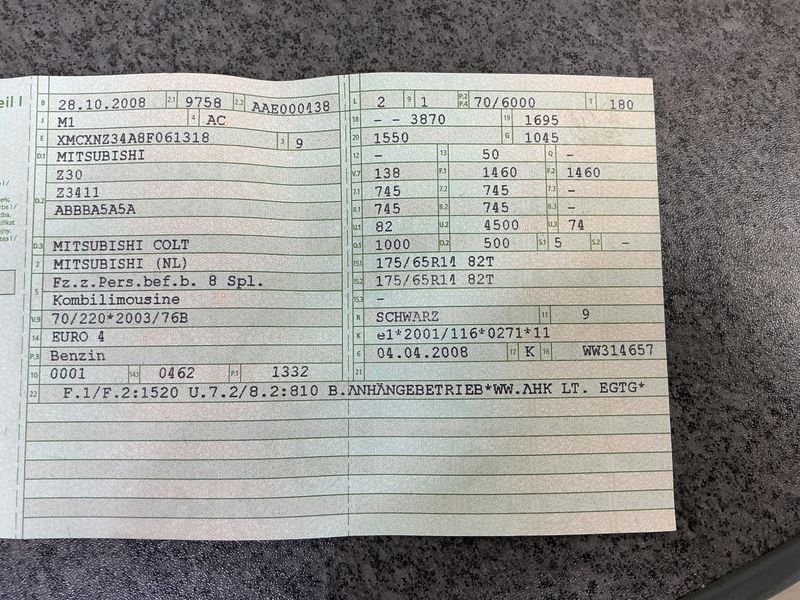 eil I
B 28.10.2008 2.1 9758 2.2 AAE000438
J M1 4 AC
E XMCXNZ34A8F061318 3 9
D.1 MITSUBISHI
Z30
D.2 Z3411
ABBBA5A5A
D.3 MITSUBISHI COLT
2 MITSUBISHI (NL)
5 Fz.z.Pers.bef.b. 8 Spl.
Kombilimousine
V.9 70/220*2003/76B
14 EURO 4
P.3 Benzin
10 0001 14.1 0462 P.1 1332
L 2 9 1 P.2 P.4 70/6000 T 180
18 - - 3870 19 1695
20 1550 G 1045
12 - 13 50 Q -
V.7 138 F.1 1460 F.2 1460
7.1 745 7.2 745 7.3 -
8.1 745 8.2 745 8.3 -
U.1 82 U.2 4500 U.3 74
O.1 1000 O.2 500 S.1 5 S.2 -
15.1 175/65R14 82T
15.2 175/65R14 82T
15.3 -
R SCHWARZ 11 9
K e1*2001/116*0271*11
6 04.04.2008 17 K 16 WW314657
21
22 F.1/F.2:1520 U.7.2/8.2:810 B.ANHÄNGEBETRIEB*WW.AHK LT. EGTG*